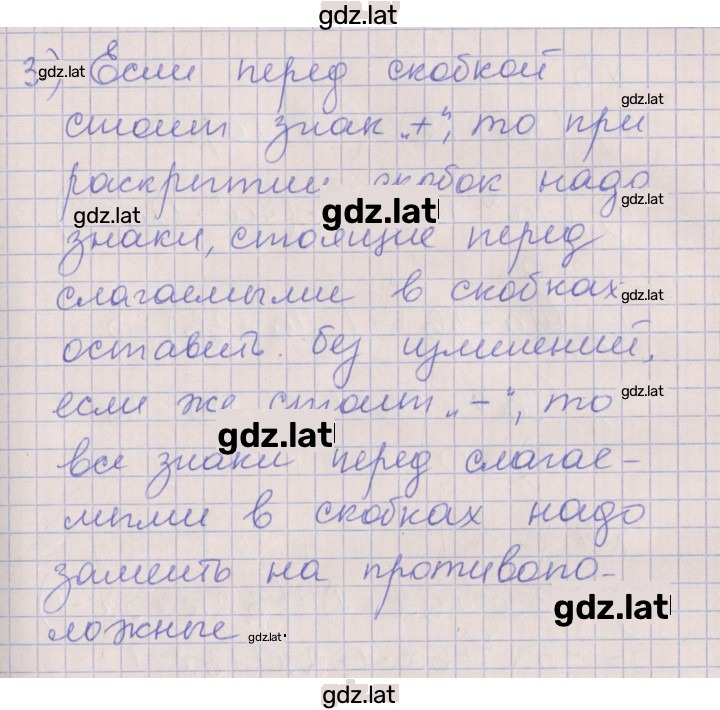 gdz.lat
3) Если перед скобкой
gdz.lat
стоит знак „+“, то при
gdz.lat
раскрытии скобок надо
gdz.lat
gdz.lat
gdz.lat
знаки, стоящие перед
слагаемыми в скобках
gdz.lat
оставить без изменений,
если же стоит „–“, то
gdz.lat
gdz.lat
все знаки перед слагае-
мыми в скобках надо
заменить на противопо-
gdz.lat
ложные
gdz.lat
gdz.lat